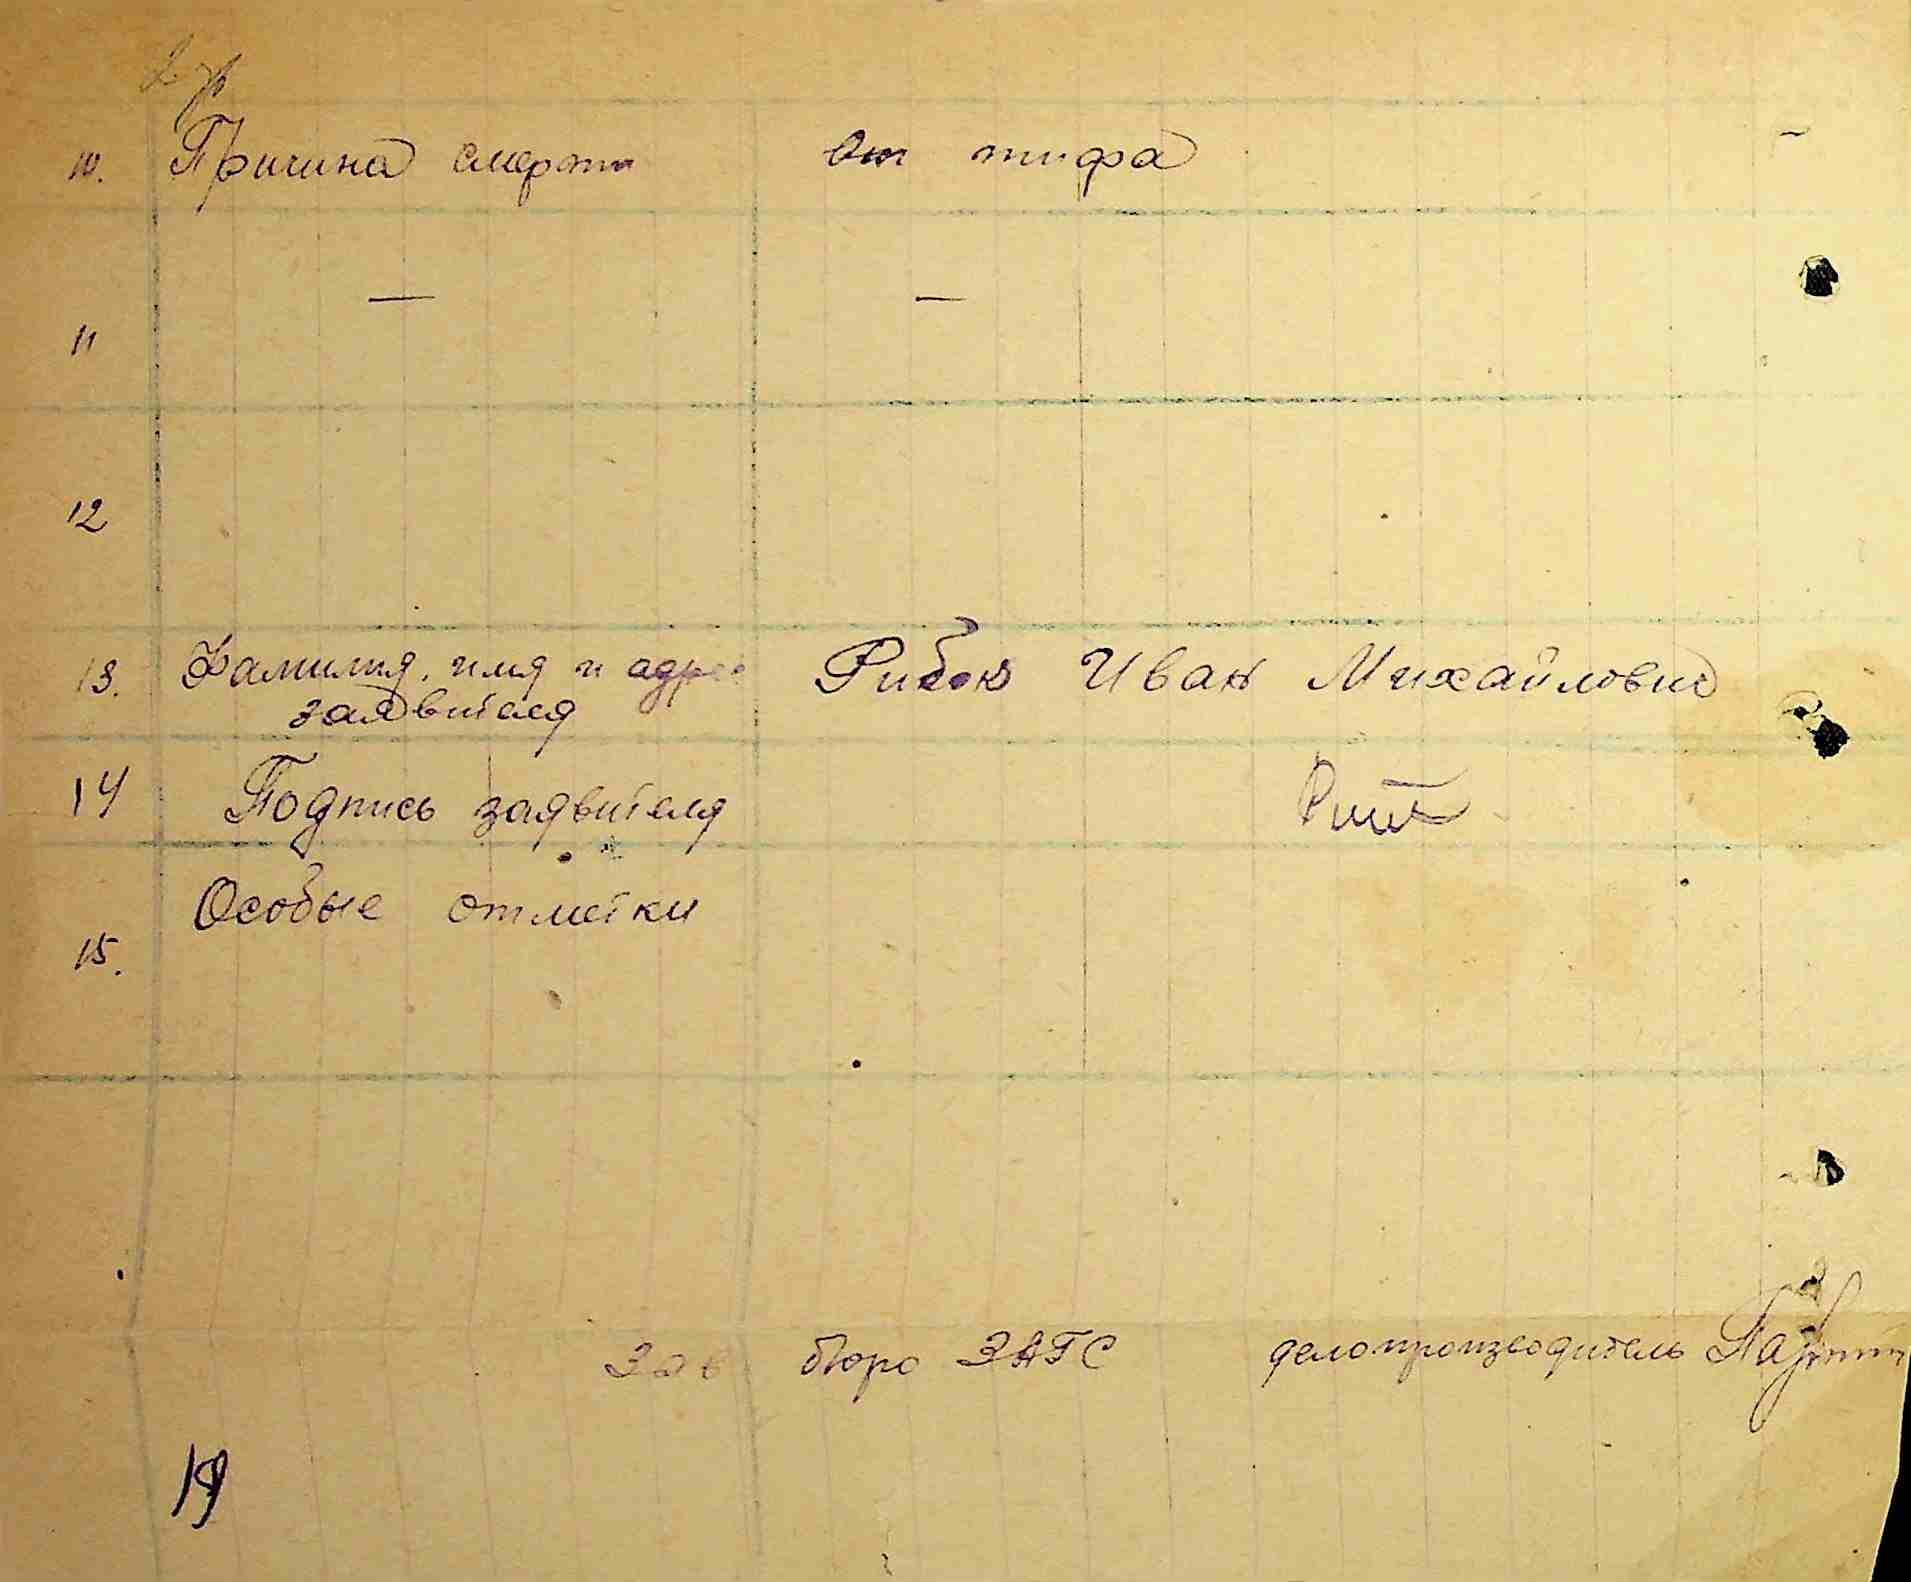 10. Причина смерти От тифа
— —
11
12
13. Фамилия, имя и адрес Рибок Иван Михайлович
заявителя
14 Подпись заявителя
Особые отметки
15.
Зав бюро ЗАГС делопроизводитель
19